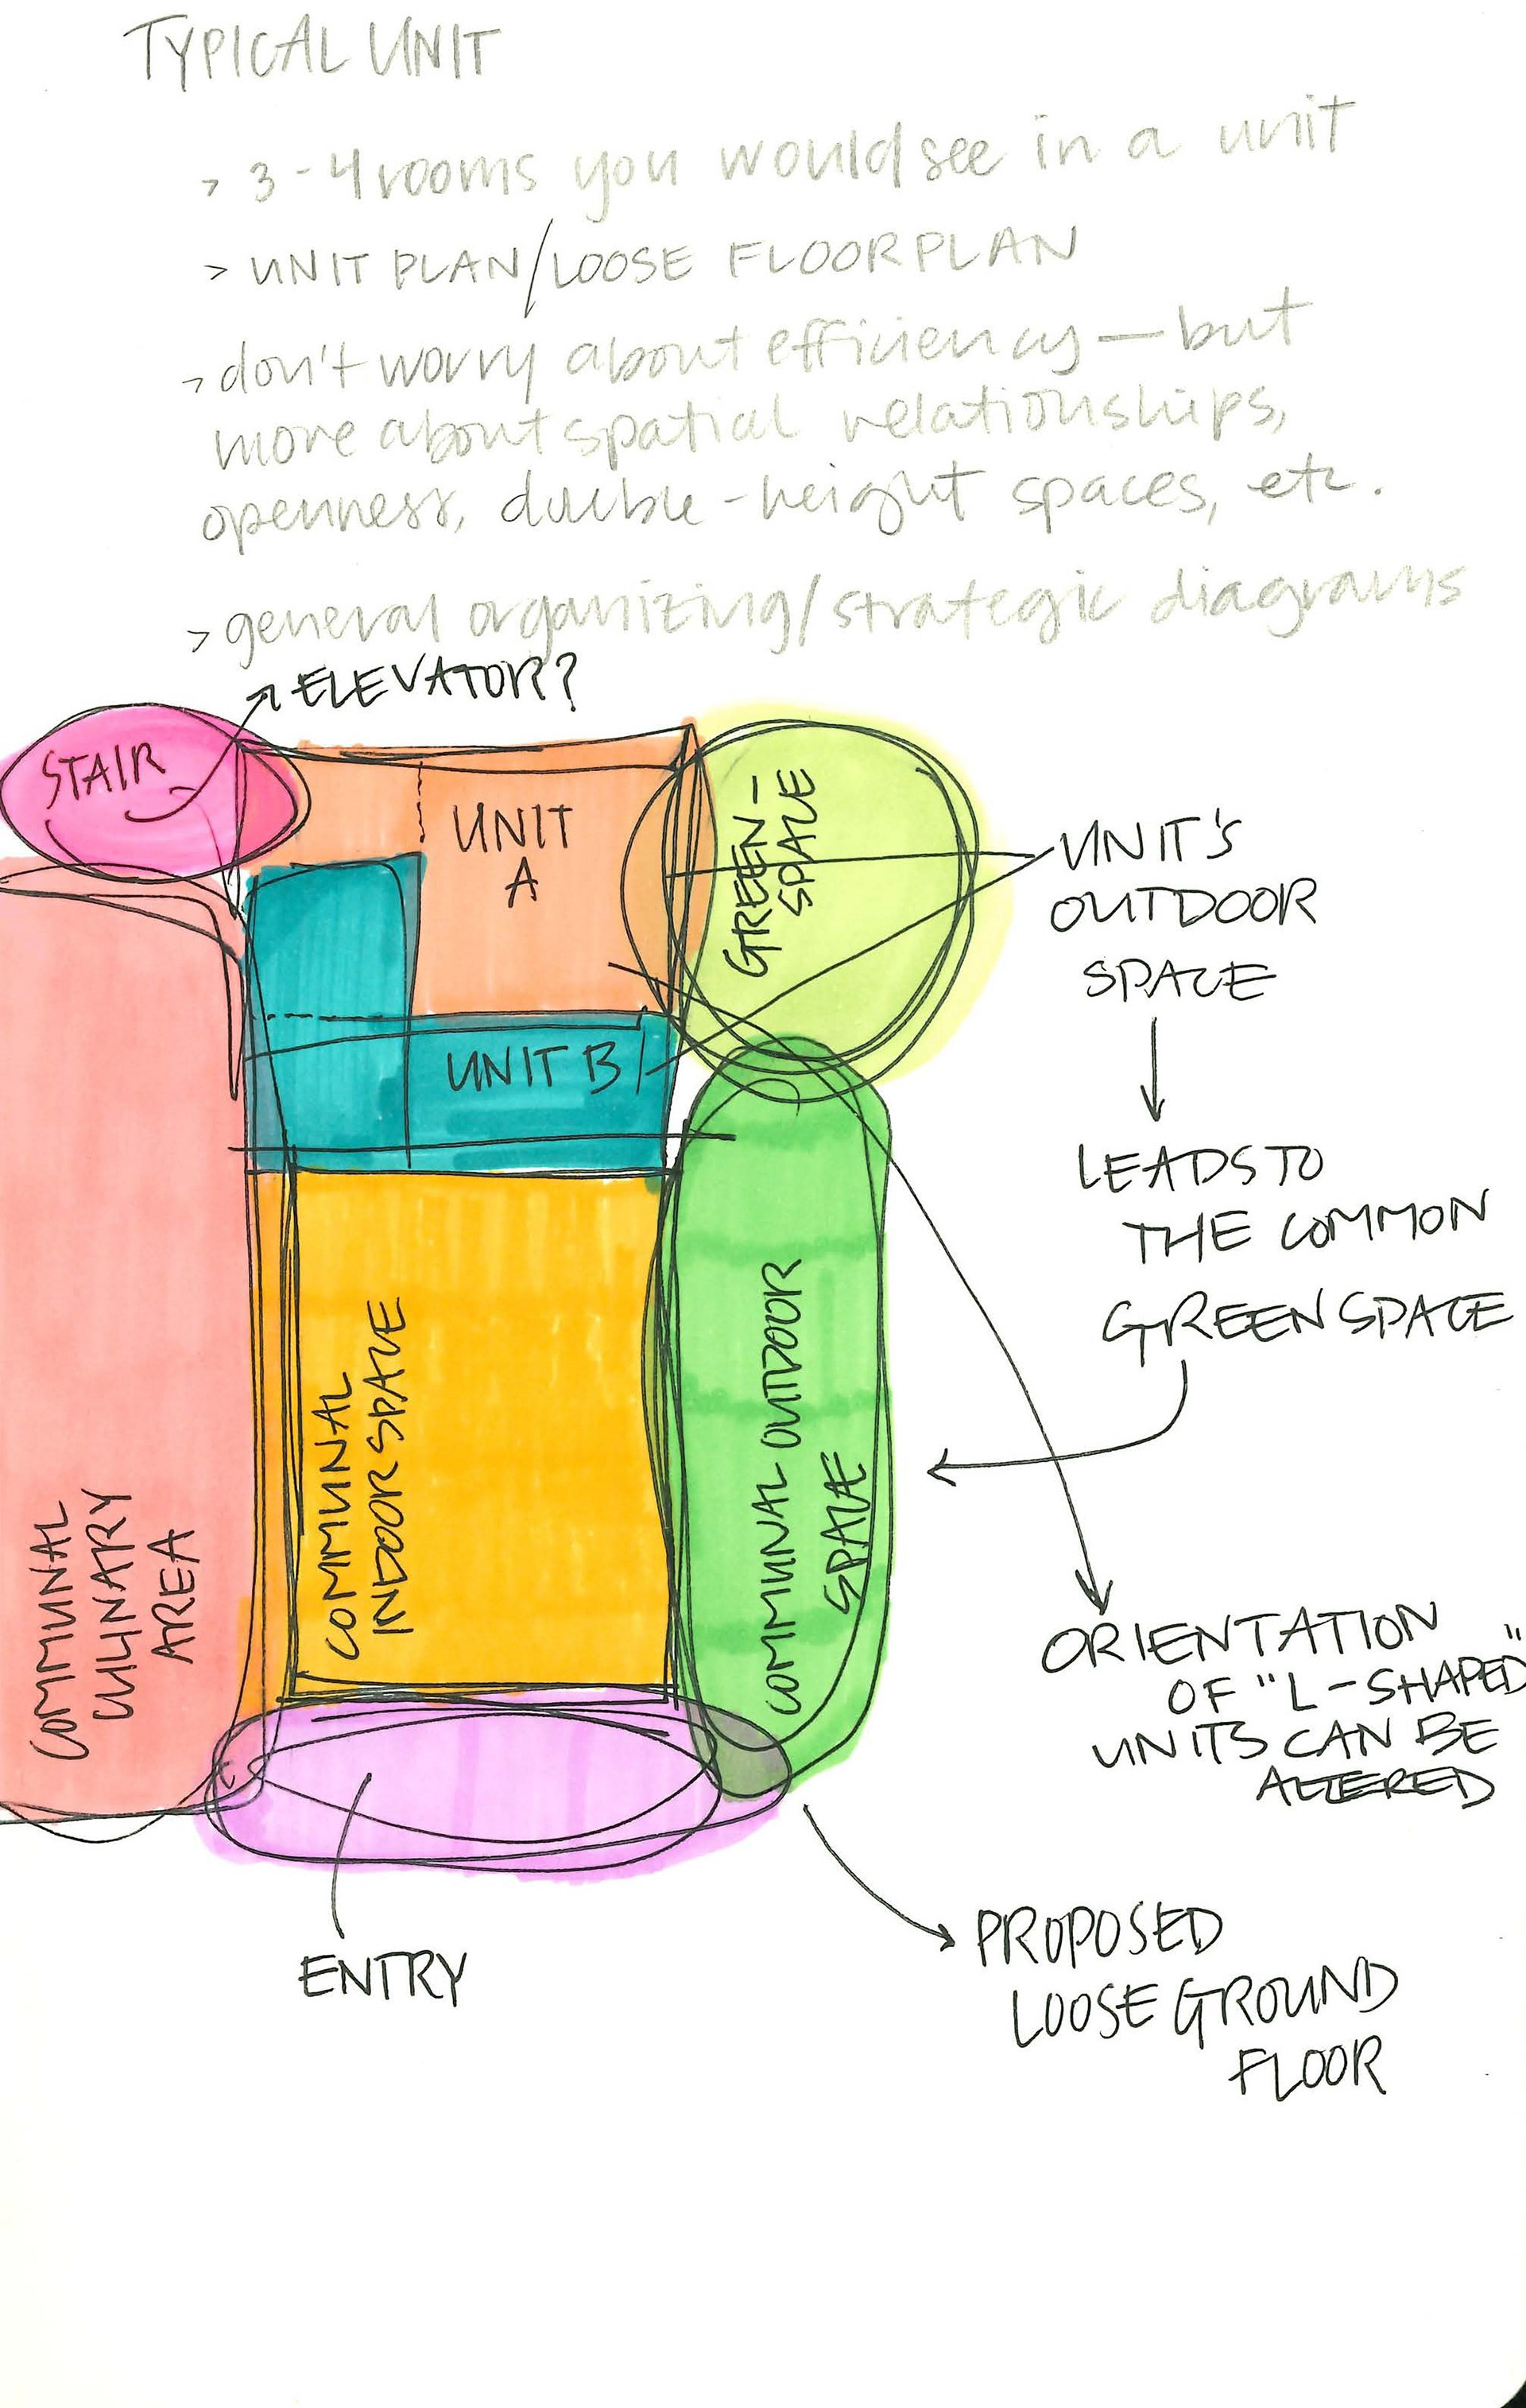 TYPICAL UNIT
> 3-4 rooms you would see in a unit
> UNIT PLAN/LOOSE FLOORPLAN
> don't worry about efficiency — but
more about spatial relationships,
openness, double-height spaces, etc.
> general organizing/strategic diagrams
ELEVATOR?
STAIR
UNIT
A
GREEN-
SPACE
UNIT'S
OUTDOOR
SPACE
UNIT B
LEADS TO
THE COMMON
GREENSPACE
COMMUNAL
CULINARY
AREA
COMMUNAL
INDOOR SPACE
COMMUNAL OUTDOOR
SPACE
ORIENTATION
OF "L-SHAPED"
UNITS CAN BE
ALTERED
ENTRY
PROPOSED
LOOSE GROUND
FLOOR